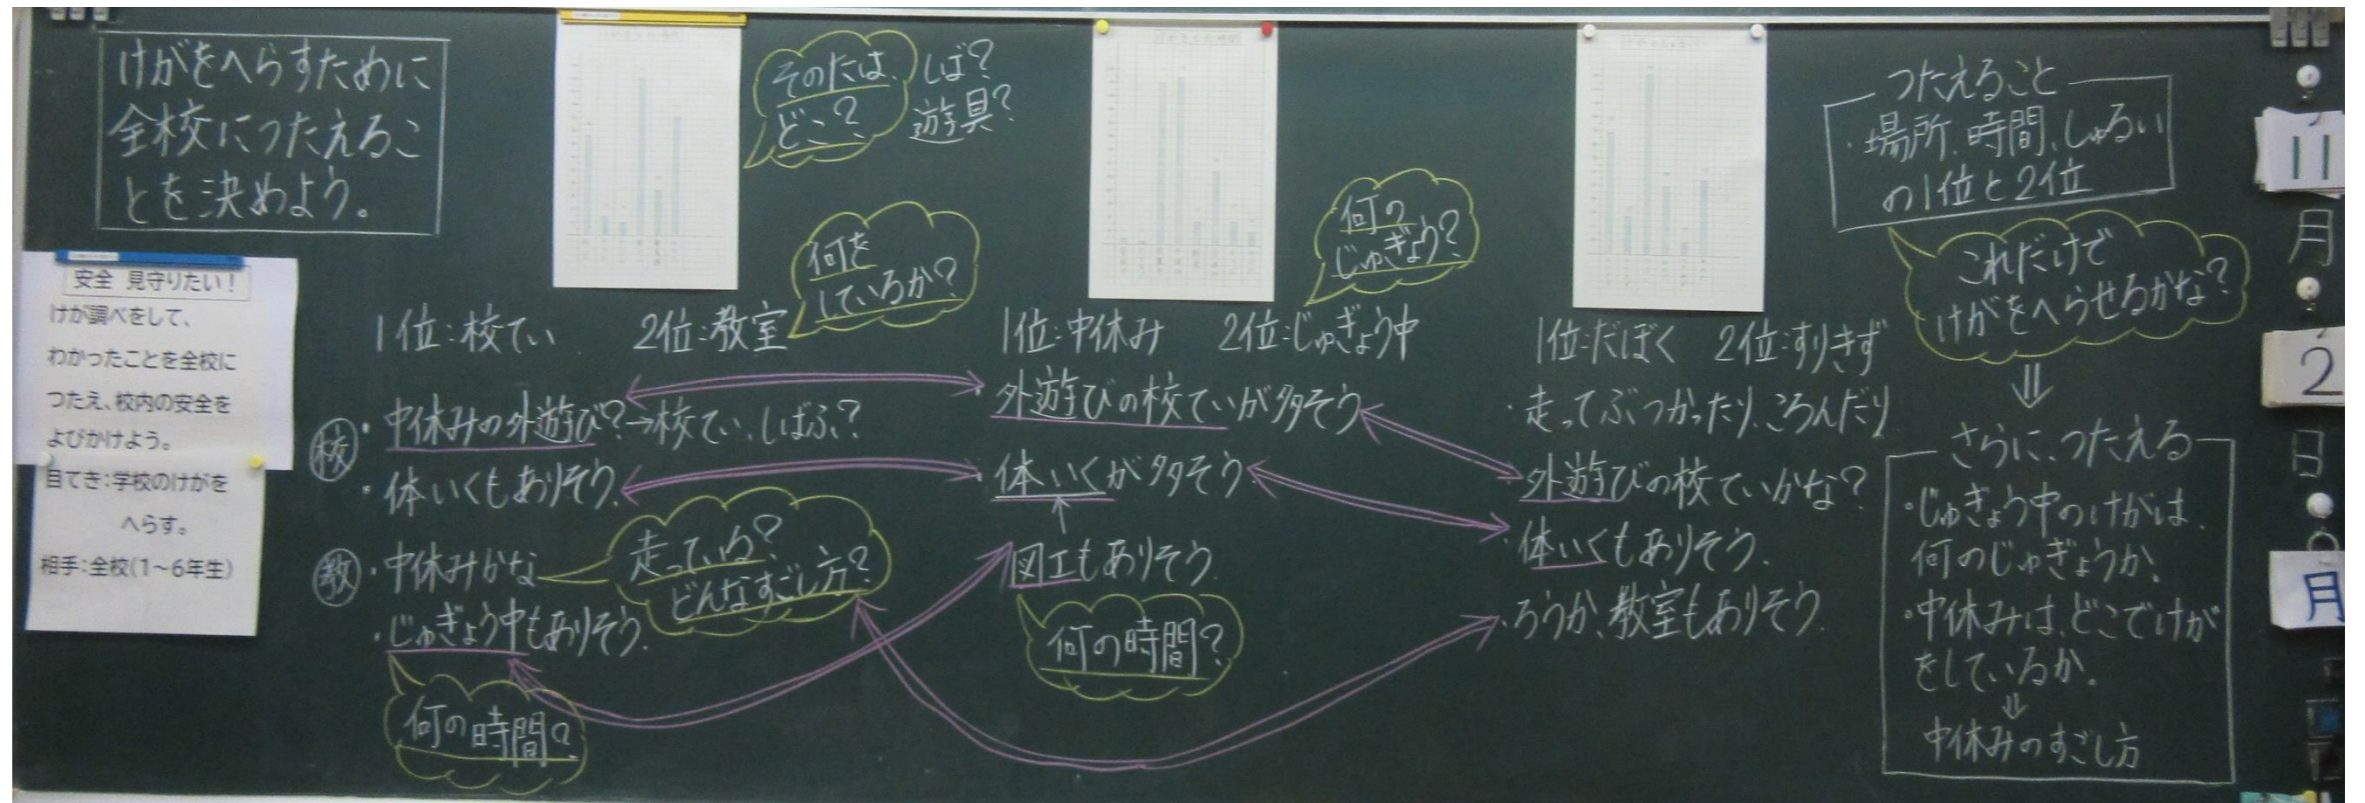 けがをへらすために
全校につたえるこ
とを決めよう。
安全 見守りたい！
けが調べをして、
わかったことを全校に
つたえ、校内の安全を
よびかけよう。
目てき：学校のけがを
へらす。
相手：全校(1～6年生)
そのたは、
どこ？
しば？
遊具？
何を
しているか？
1位：校てい
2位：教室
校
・中休みの外遊び？→校てい、しばふ？
・体いくもありそう。
教
・中休みかな
走っている？
どんなすごし方？
・じゅぎょう中もありそう。
何の時間？
何の
じゅぎょう？
1位：中休み
2位：じゅぎょう中
・外遊びの校ていが多そう
・体いくが多そう
↑
図工もありそう。
何の時間？
1位：だぼく
2位：すりきず
・走ってぶつかったり、ころんだり
外遊びの校ていかな？
・体いくもありそう。
・ろうか、教室もありそう。
つたえること
・場所、時間、しゅるい
の1位と2位
これだけで
けがをへらせるかな？
⇓
さらに、つたえる
・じゅぎょう中のけがは、
何のじゅぎょうか。
・中休みは、どこでけが
をしているか。
⇓
中休みのすごし方
11
月
2
日
月